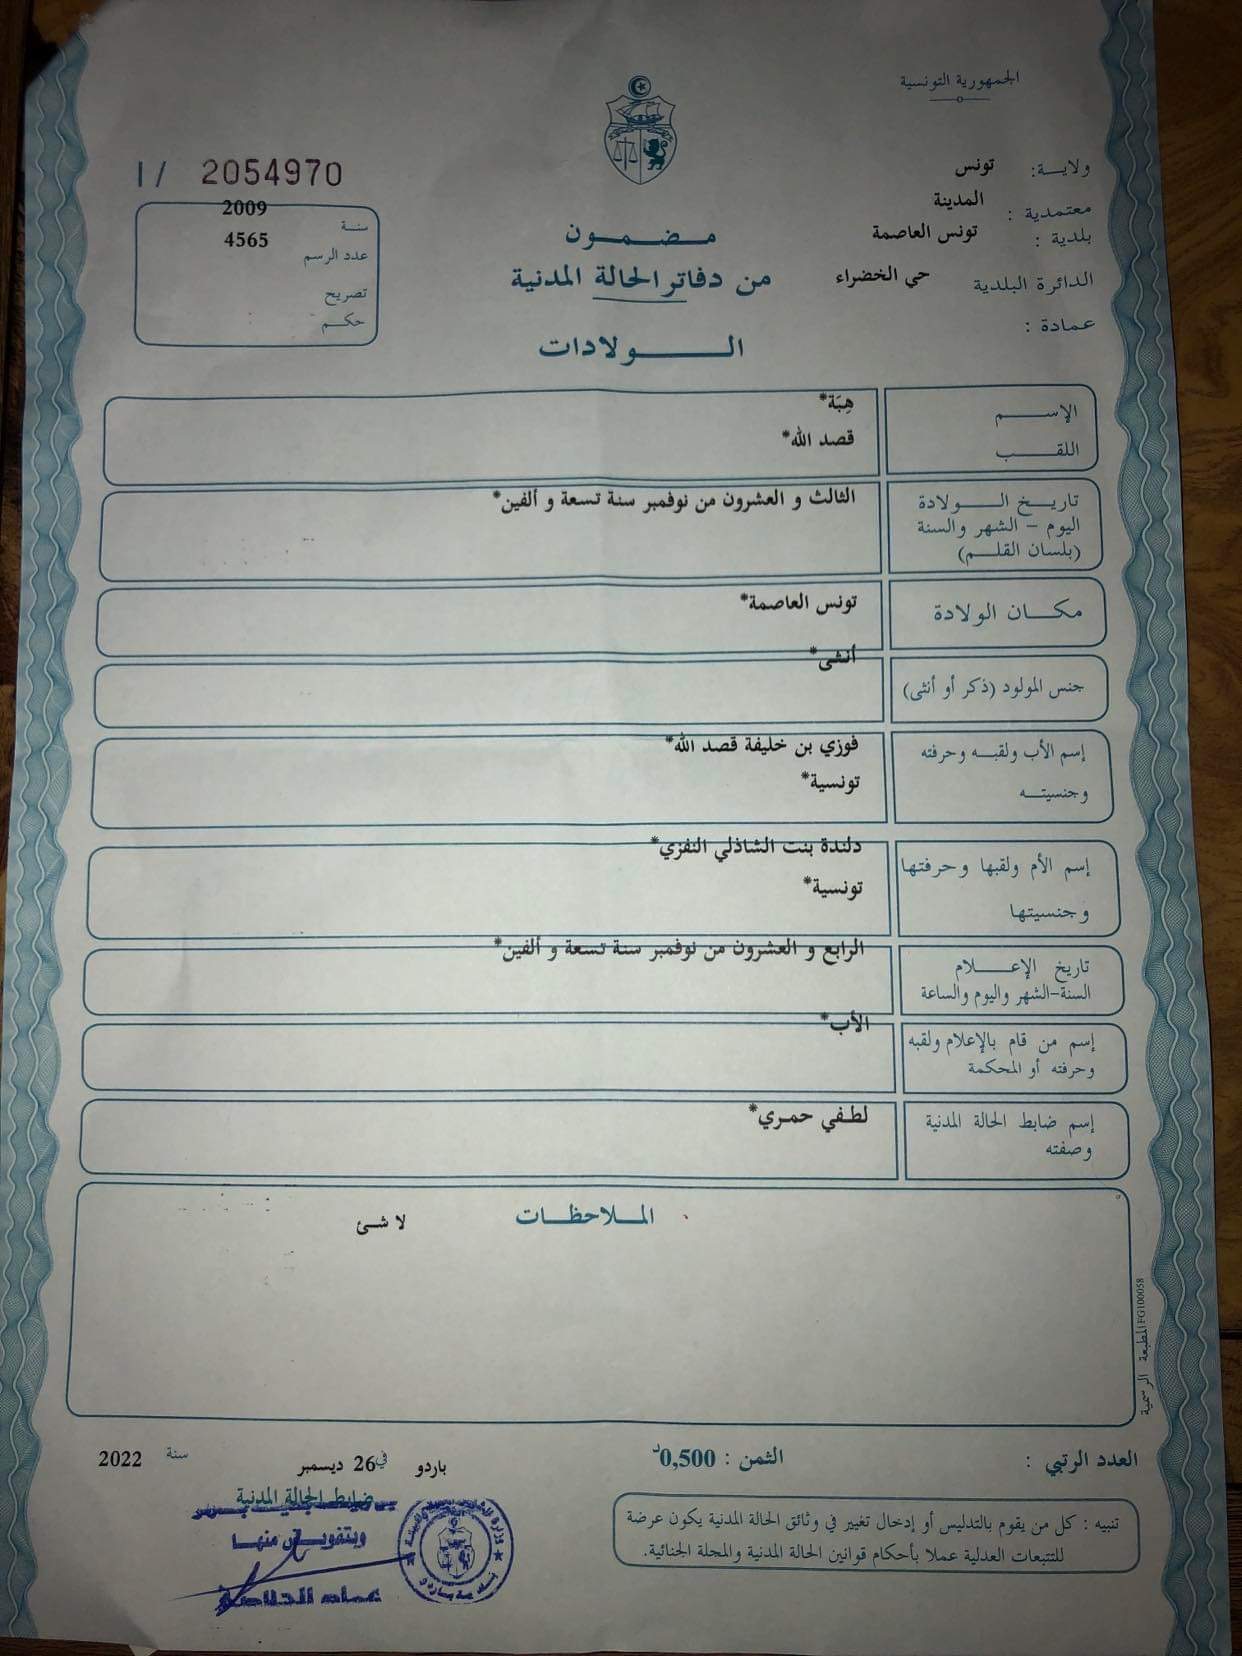 الجمهورية التونسية
ولايـة: تونس
معتمدية : المدينة
بلدية : تونس العاصمة
الدائرة البلدية حي الخضراء
عمادة :
I/ 2054970
سنة 2009
عدد الرسم 4565
تصريح
حكم
مضمون
من دفاتر الحالة المدنية
الولادات
الإسم هِبَة*
اللقب قصد الله*
تاريخ الولادة الثالث و العشرون من نوفمبر سنة تسعة و ألفين*
اليوم - الشهر والسنة
(بلسان القلم)
مكان الولادة تونس العاصمة*
جنس المولود (ذكر أو أنثى) أنثى*
إسم الأب ولقبه وحرفته فوزي بن خليفة قصد الله*
وجنسيته تونسية*
إسم الأم ولقبها وحرفتها دلندة بنت الشاذلي النفزي*
وجنسيتها تونسية*
تاريخ الإعلام الرابع و العشرون من نوفمبر سنة تسعة و ألفين*
السنة-الشهر واليوم والساعة
إسم من قام بالإعلام ولقبه الأب*
وحرفته أو المحكمة
إسم ضابط الحالة المدنية لطفي حمري*
وصفته
الملاحظات
لا شئ
المطبعة الرسمية FG100058
العدد الرتبي :
الثمن : 0,500د
باردو في 26 ديسمبر سنة 2022
ضابط الحالة المدنية
وبتفويض منها
تنبيه : كل من يقوم بالتدليس أو إدخال تغيير في وثائق الحالة المدنية يكون عرضة
للتتبعات العدلية عملا بأحكام قوانين الحالة المدنية والمجلة الجنائية.